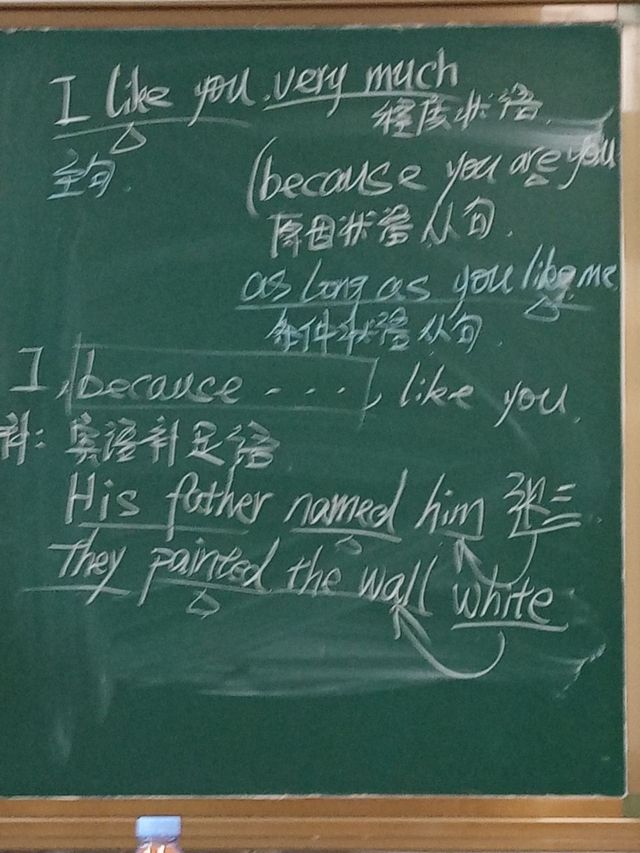 I like you very much
程度状语
主句.
(because you are you
原因状语从句.
as long as you like me
条件状语从句.
I, because ····, like you.
补: 宾语补足语
His father named him 张三.
They painted the wall white